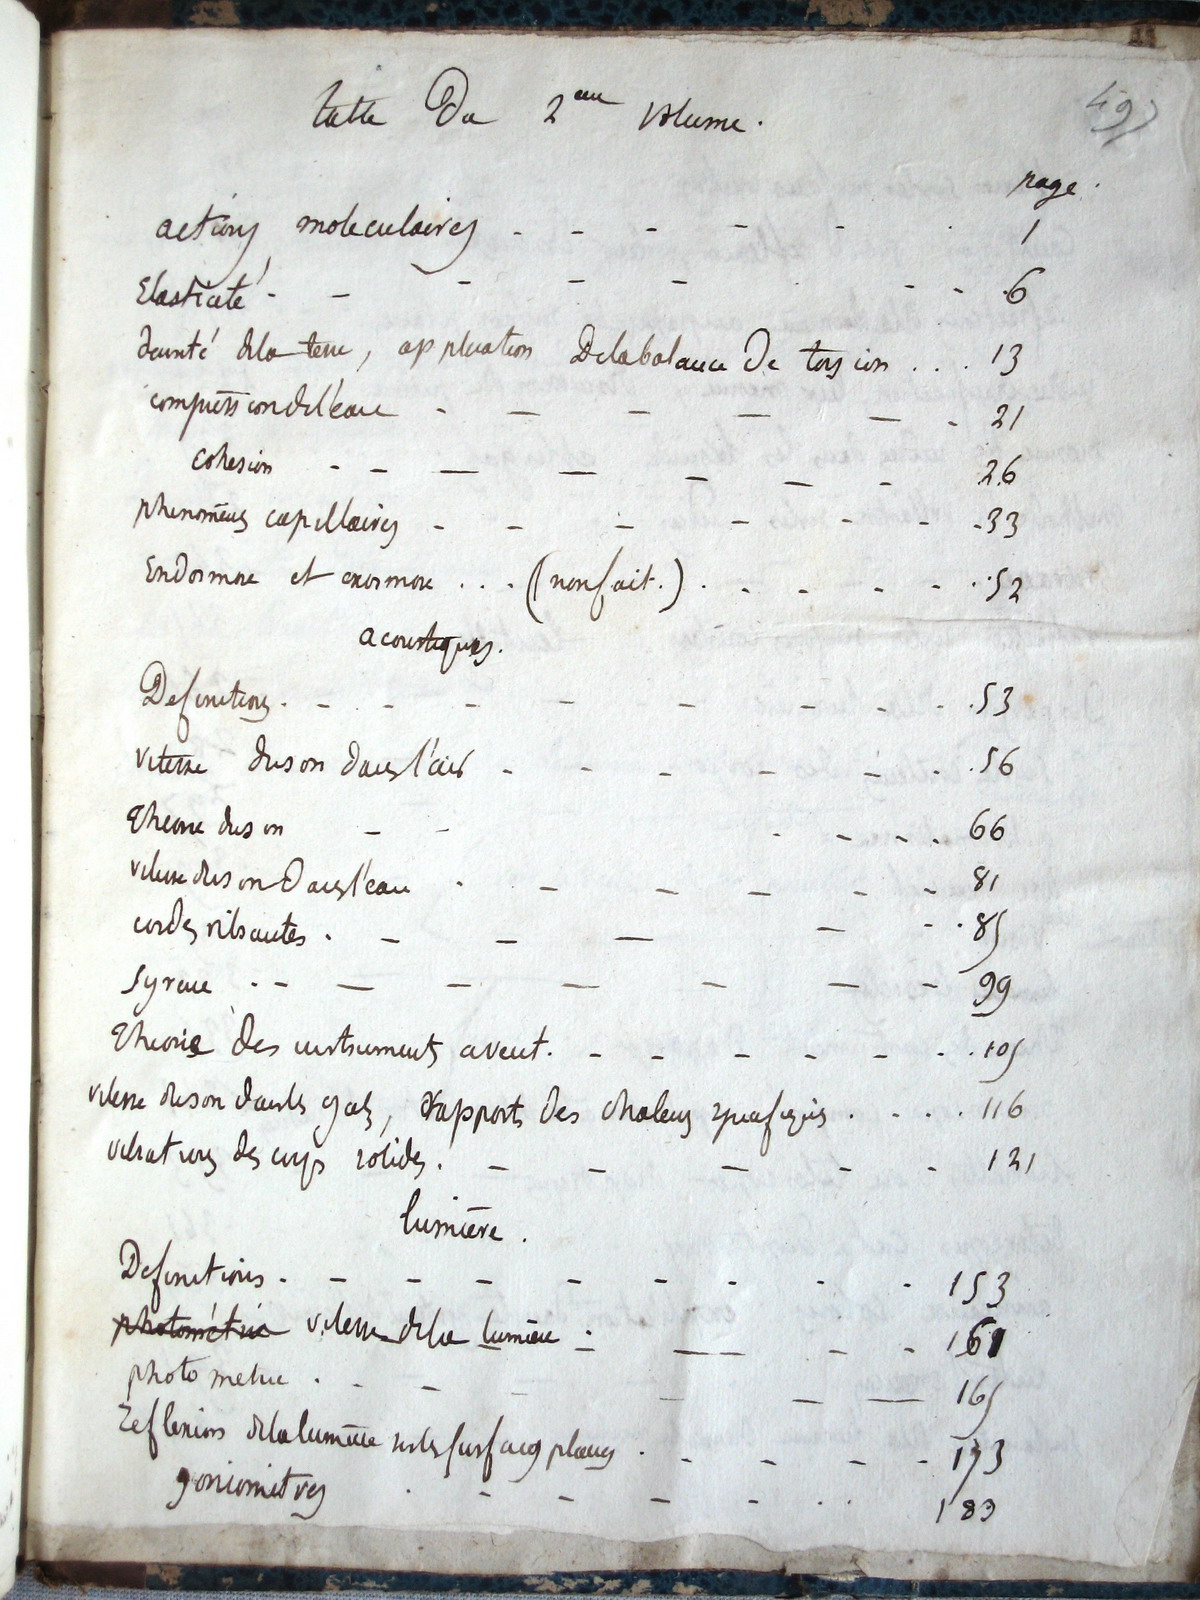 table Du 2eme volume.
page.
actions moleculaires - - - - - . 1
Elasticité - - - - - - - 6
densité dela terre, application Delabalance De torsion .... 13
compression del'eau - - - - - - 21
cohesion - - - - - - - 26
phenomènes capillaires - - - - - - 33
Endosmose et exosmose ... (non fait.) . - - - - 52
acoustiques.
Definitions. - - - - - - - - 53
vitesse duson dans l'air - - - - - - 56
theorie duson - - - - - 66
vitesse duson Dans l'eau - - - - - - 81
cordes vibrantes - - - - - - 85
Syrene - - - - - - - - 99
Theorie des instruments avent. - - - - - - - 105
vitesse duson dansles gaz, rapport des chaleurs specifiques .... 116
vibrations des corps solides. - - - - - 121
lumière.
Definitions - - - - - - - - - 153
photométrie vitesse dela lumière - - - - 161
photometrie - - - - - - 165
reflexion delalumière surles surfaces planes - - - - - 173
goniomètres - - - - - - 183